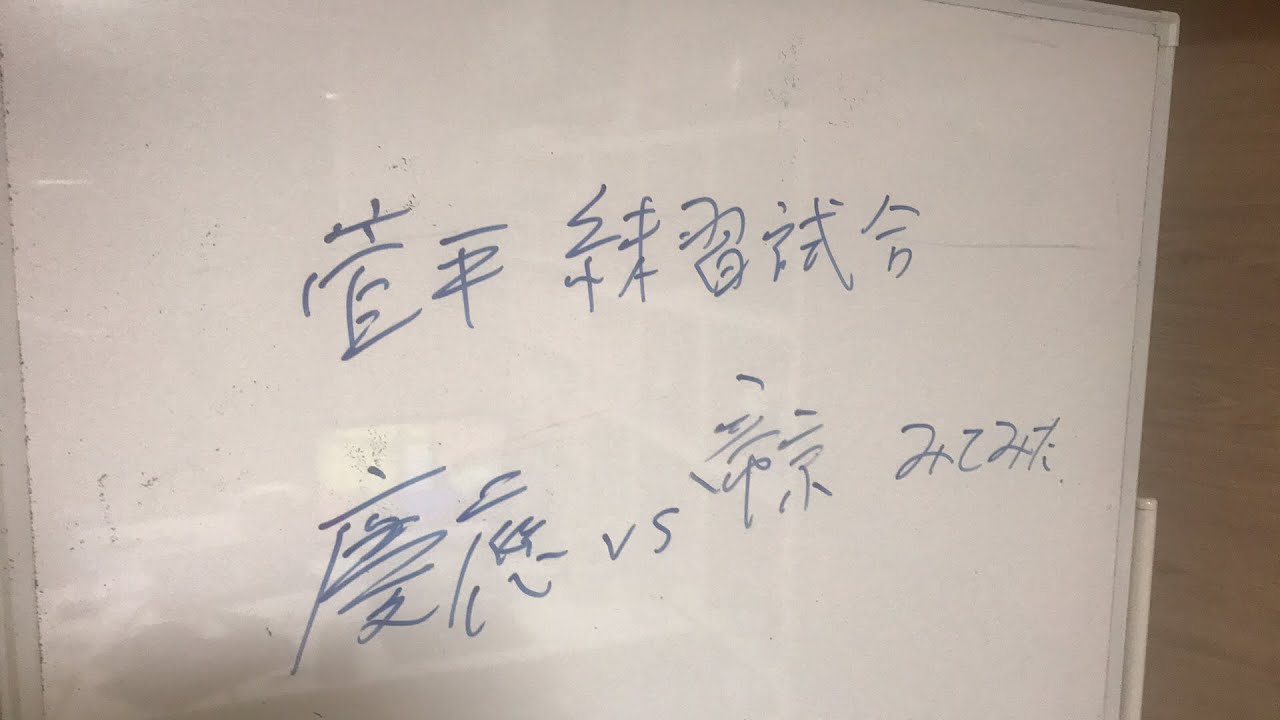 菅平 練習試合
慶應 vs 帝京 みてみた